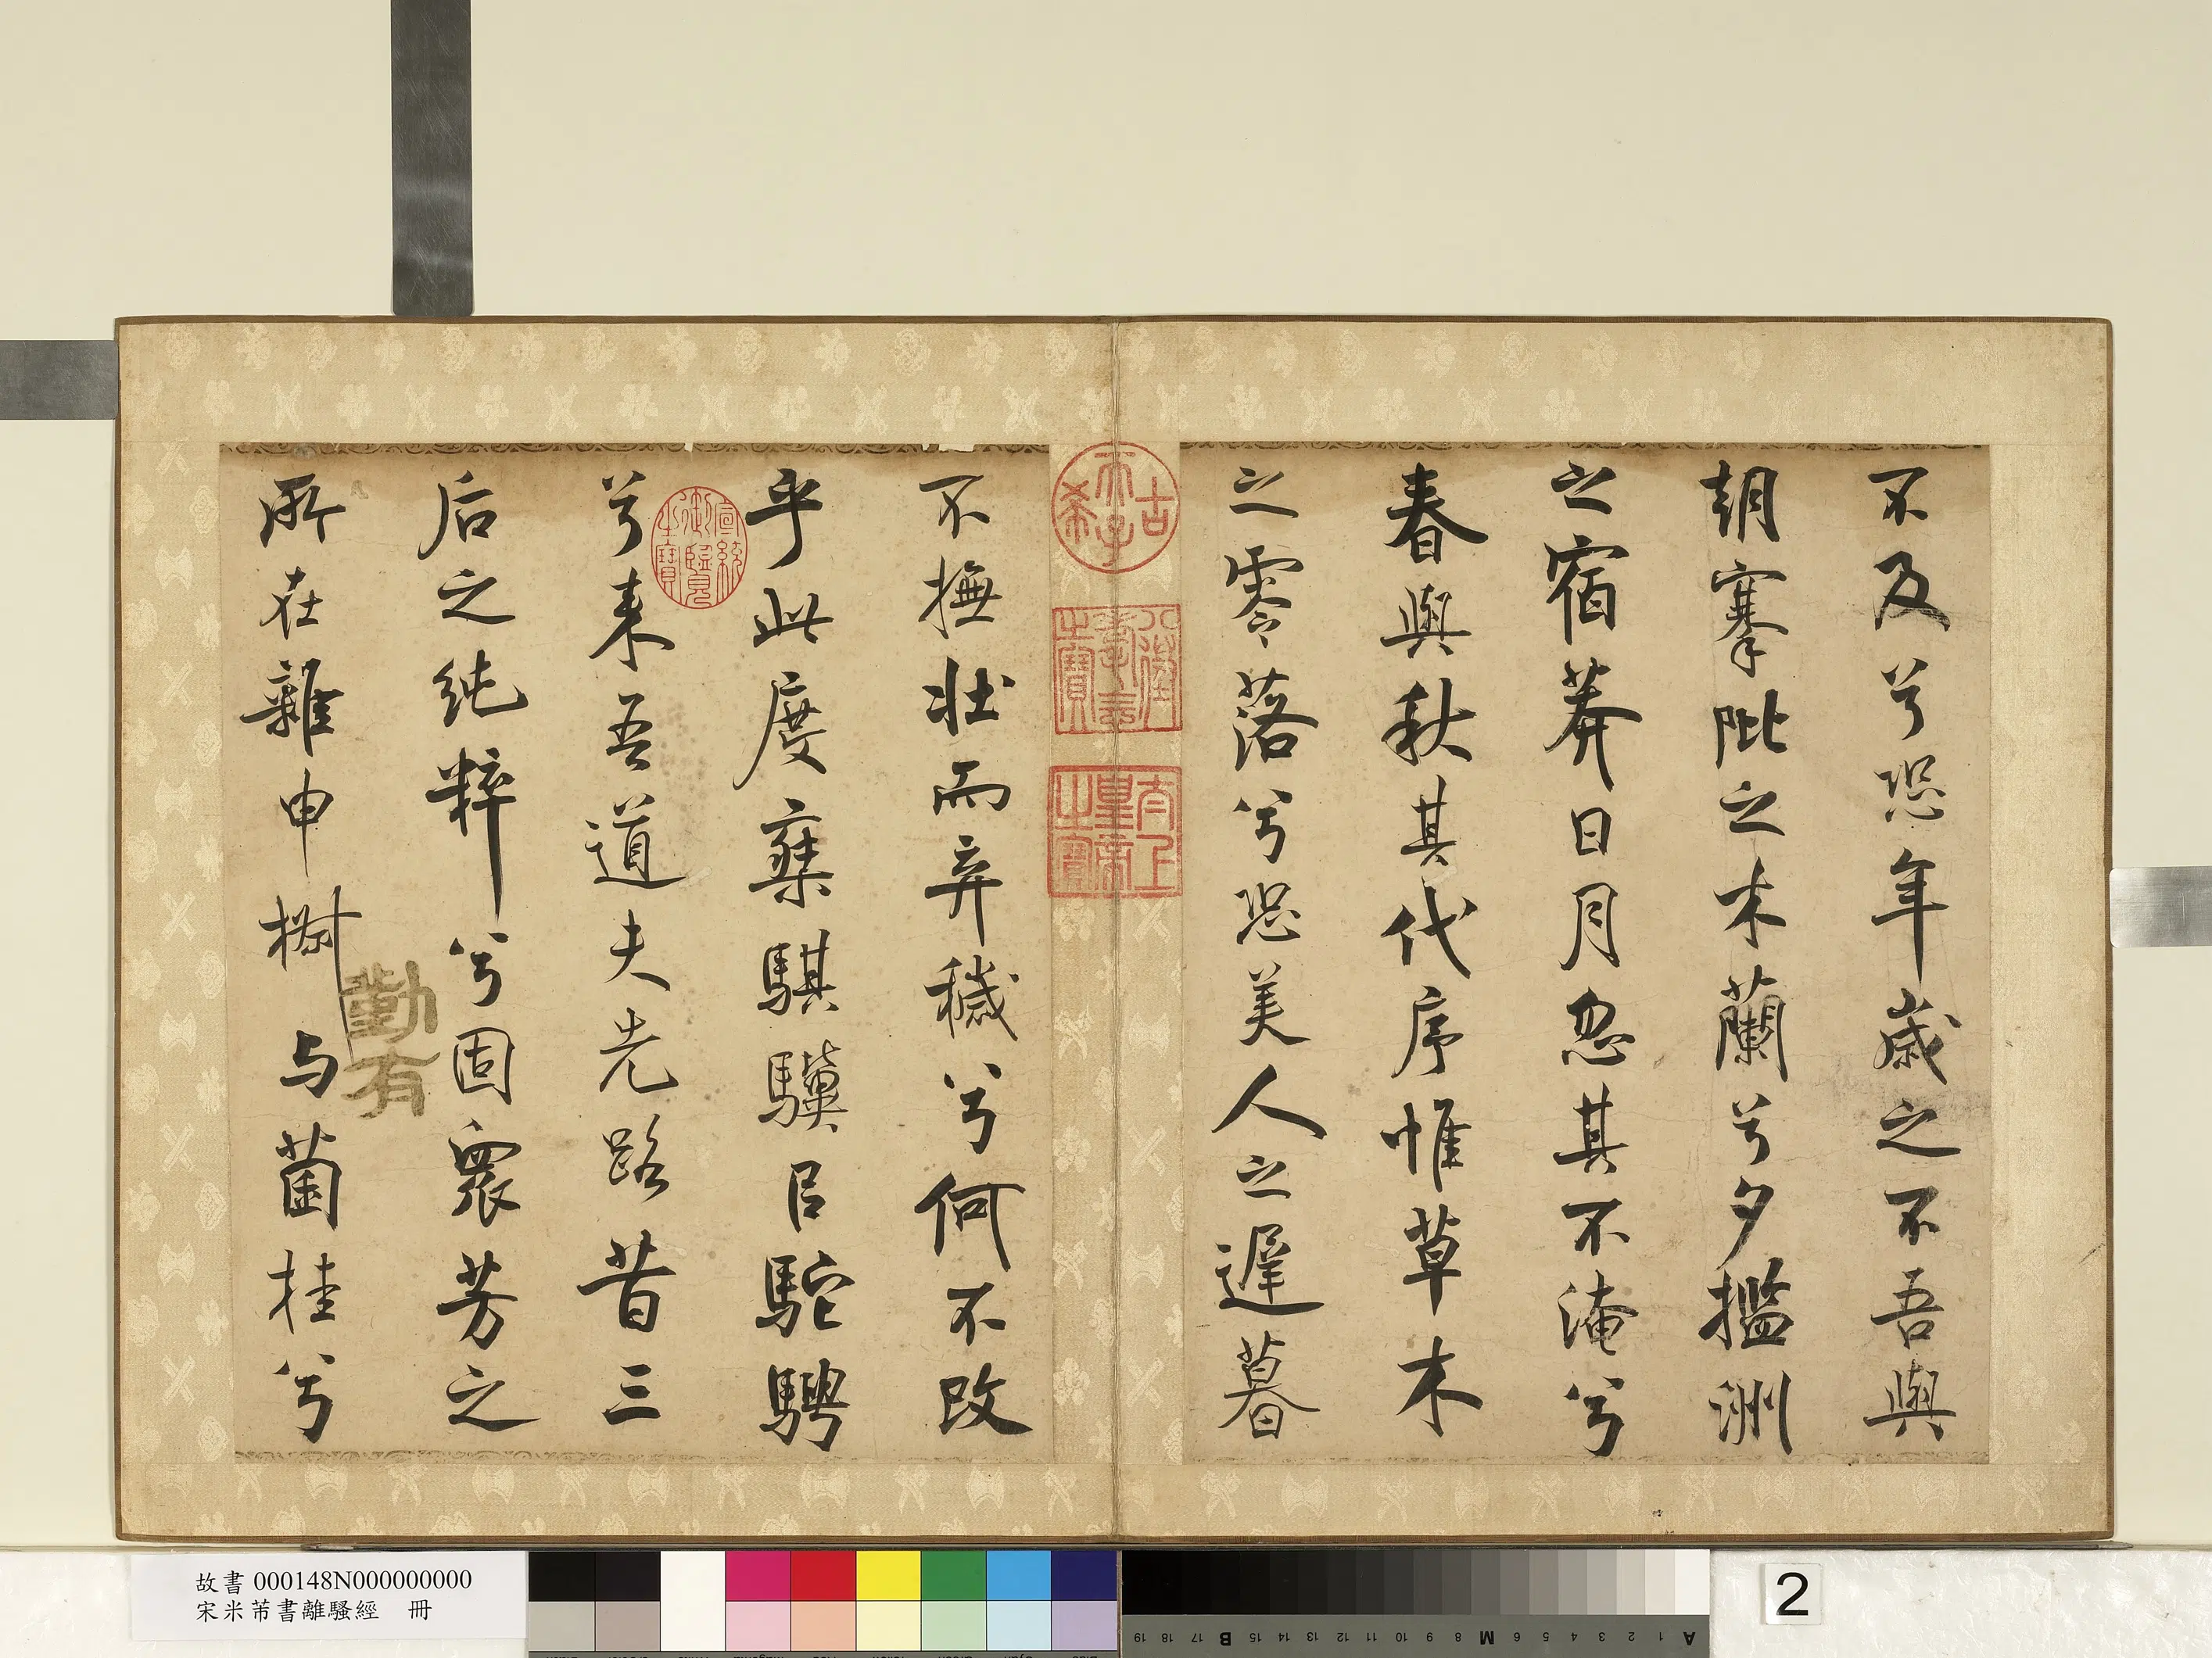 不及兮恐年歲之不吾與
朝搴阰之木蘭兮夕擥洲
之宿莽日月忽其不淹兮
春與秋其代序惟草木
之零落兮恐美人之遲暮
古希天子
八徵耄念之寶
太上皇帝之寶
不撫壯而弃穢兮何不改
乎此度棄騏驥㠯駝騁
兮来吾道夫先路昔三
后之純粹兮固衆芳之
所在雜申椒与菌桂兮
宣統御覽之寶
勤有
故書 000148N000000000
宋米芾書離騷經 冊
2
A 1 2 3 4 5 6 M 8 9 10 11 12 13 14 15 B 17 18 19